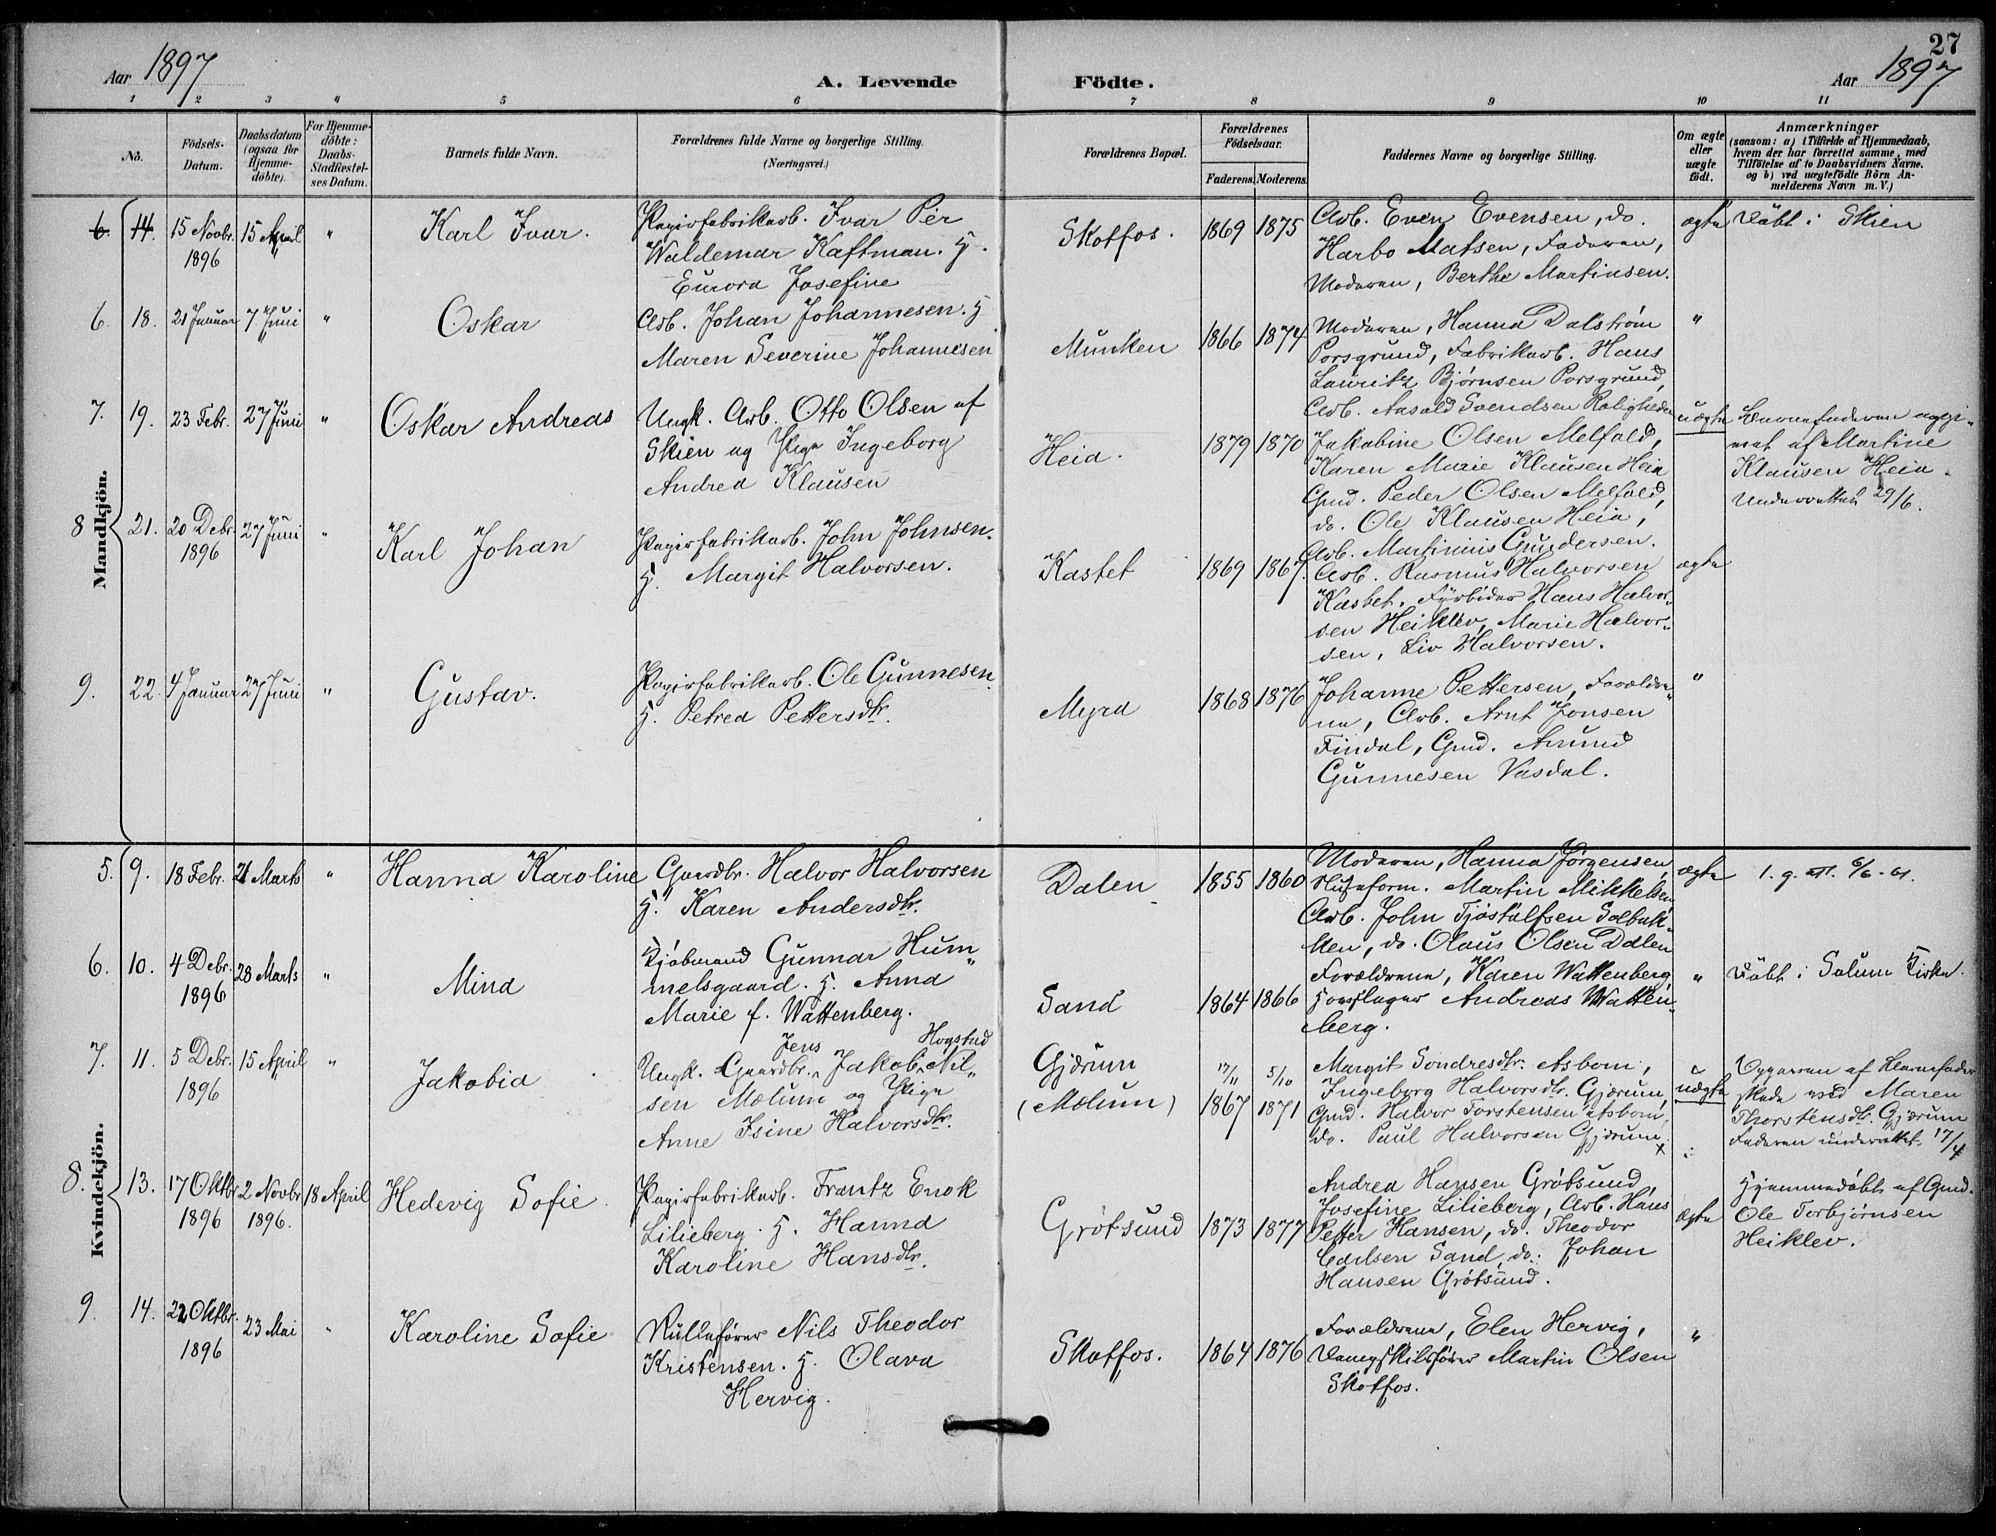 27
Aar 1897
A. Levende Födte.
Aar 1897
1 2 3 4 5 6 7 8 9 10 11
Nö.
Födsels-
Datum.
Daabsdatum
(ogsaa for
Hjemme-
döbte).
For Hjemme-
döbte:
Daabs-
Stadfæstel-
ses Datum.
Barnets fulde Navn.
Forældrenes fulde Navne og borgerlige Stilling.
(Næringsvei.)
Forældrenes Bopæl.
Forældrenes
Födselsaar.
Faderens. Moderens.
Faddernes Navne og borgerlige Stilling.
Om ægte
eller
uægte
födt.
Anmærkninger
(saasom: a) i Tilfælde af Hjemmedaab,
hvem der har forrettet samme, med
Tilföielse af to Daabsvidners Navne.
og b) ved uægtefödte Börn An-
melderens Navn m. V.)
Mandkjön.
6. 14. 15 Novbr. 1896
15 April
"
Karl Ivar.
Papirfabrikarb. Ivar Per
Waldemar Kaftman. H.
Eurora Josefine
Skotfos.
1869 1875
Arb. Even Evensen, do.
Harbo Matsen, Faderen,
Moderen, Berthe Martinsen.
ægte
Døbt i Skien
6. 18. 21 Januar
7 Juni
"
Oskar
Arb. Johan Johannesen. H
Maren Severine Johannesen
Munken
1866 1874
Moderen, Hanna Dalstrøm
Porsgrund, Fabrikarb. Hans
Lauritz Bjørnsen Porsgrund,
Arb. Aasold Svendsen Roligheden
"
7. 19. 23 Febr.
27 Juni
"
Oskar Andreas
Ungk. Arb. Otto Olsen af
Skien og Pige Ingeborg
Andrea Klausen
Heia.
1879 1870
Jakobine Olsen Melfald,
Karen Marie Klausen Heia
Gmd. Peder Olsen Melfald,
do. Ole Klausen Heia,
Arb. Martinius Gundersen.
uægte
Barnefaderen opgi-
vet af Martine
Klausen Heia.
Underrettet 29/6.
8 21. 20 Debr. 1896
27 Juni
"
Karl Johan
Papirfabrikarb. John Johnsen.
H. Margit Halvorsen.
Kastet
1869 1867.
Arb. Rasmus Halvorsen
Kastet, Fyrbøder Hans Halvor-
sen Heiklev, Marie Halvor-
sen, Liv Halvorsen.
ægte
9. 22. 4 Januar
27 Juni
"
Gustav.
Papirfabrikarb. Ole Gunnesen.
H. Petrea Pettersdtr.
Myra
1868 1876
Johanne Pettersen, Forældre-
ne, Arb. Arnt Jonsen
Findal, Gmd. Amund
Gunnesen Vasdal.
"
Kvindekjön.
5. 9. 18 Febr.
21 Marts
"
Hanna Karoline
Gaardbr. Halvor Halvorsen
H. Karen Andersdtr.
Dalen
1855 1860
Moderen, Hanna Jørgensen,
Martin Mikkelsen
Arb. John Tjøstulfsen Solbak-
ken, do. Olaus Olsen Dalen
ægte
6. 10. 4 Debr. 1896
28 Marts
"
Mina
Kjøbmand Gunnar Hum-
melsgaard. H. Anna
Marie f. Wattenberg.
Sand
1864 1866
Forældrene, Karen Wattenberg,
Andreas Watten-
berg.
"
Døbt i Solum Kirke.
7. 11. 5 Debr. 1896
15 April
"
Jakobia
Ungk. Gaardbr. Jens Jakob Hogstad Nil-
sen Mælum og Pige
Anne Isine Halvorsdtr.
Gjærum
(Mælum)
17/11 1867 5/10 1871
Margit Sondresdtr. Asbom,
Ingeborg Halvorsdtr. Gjærum,
Gmd. Halvor Torstensen Asbom
do. Paul Halvorsen Gjærum.
uægte
Opgaven af Barnefader
skede ved Maren
Thorstensdtr. Gjærum
Faderen underrettet 17/4
8. 13. 17 Oktbr. 1896
2 Novbr. 1896.
18 April
Hedevig Sofie.
Papirfabrikarb. Frantz Enok
Lilieberg. H. Hanna
Karoline Hansdtr.
Grøtsund
1873 1877
Andrea Hansen Grøtsund,
Josefine Lilieberg, Arb. Hans
Petter Hansen, do. Theodor
Carlsen Sand, do. Johan
Hansen Grøtsund.
ægte
Hjemmedøbt af Gmd.
Ole Torbjørnsen
Heiklev.
9. 14. 22 Oktbr. 1896
23 Mai
"
Karoline Sofie
Rullefører Nils Theodor
Kristensen. H. Olava
Hervig.
Skotfos.
1864 1876
Forældrene, Elen Hervig,
Dampskibsfører Martin Olsen
Skotfos.
"